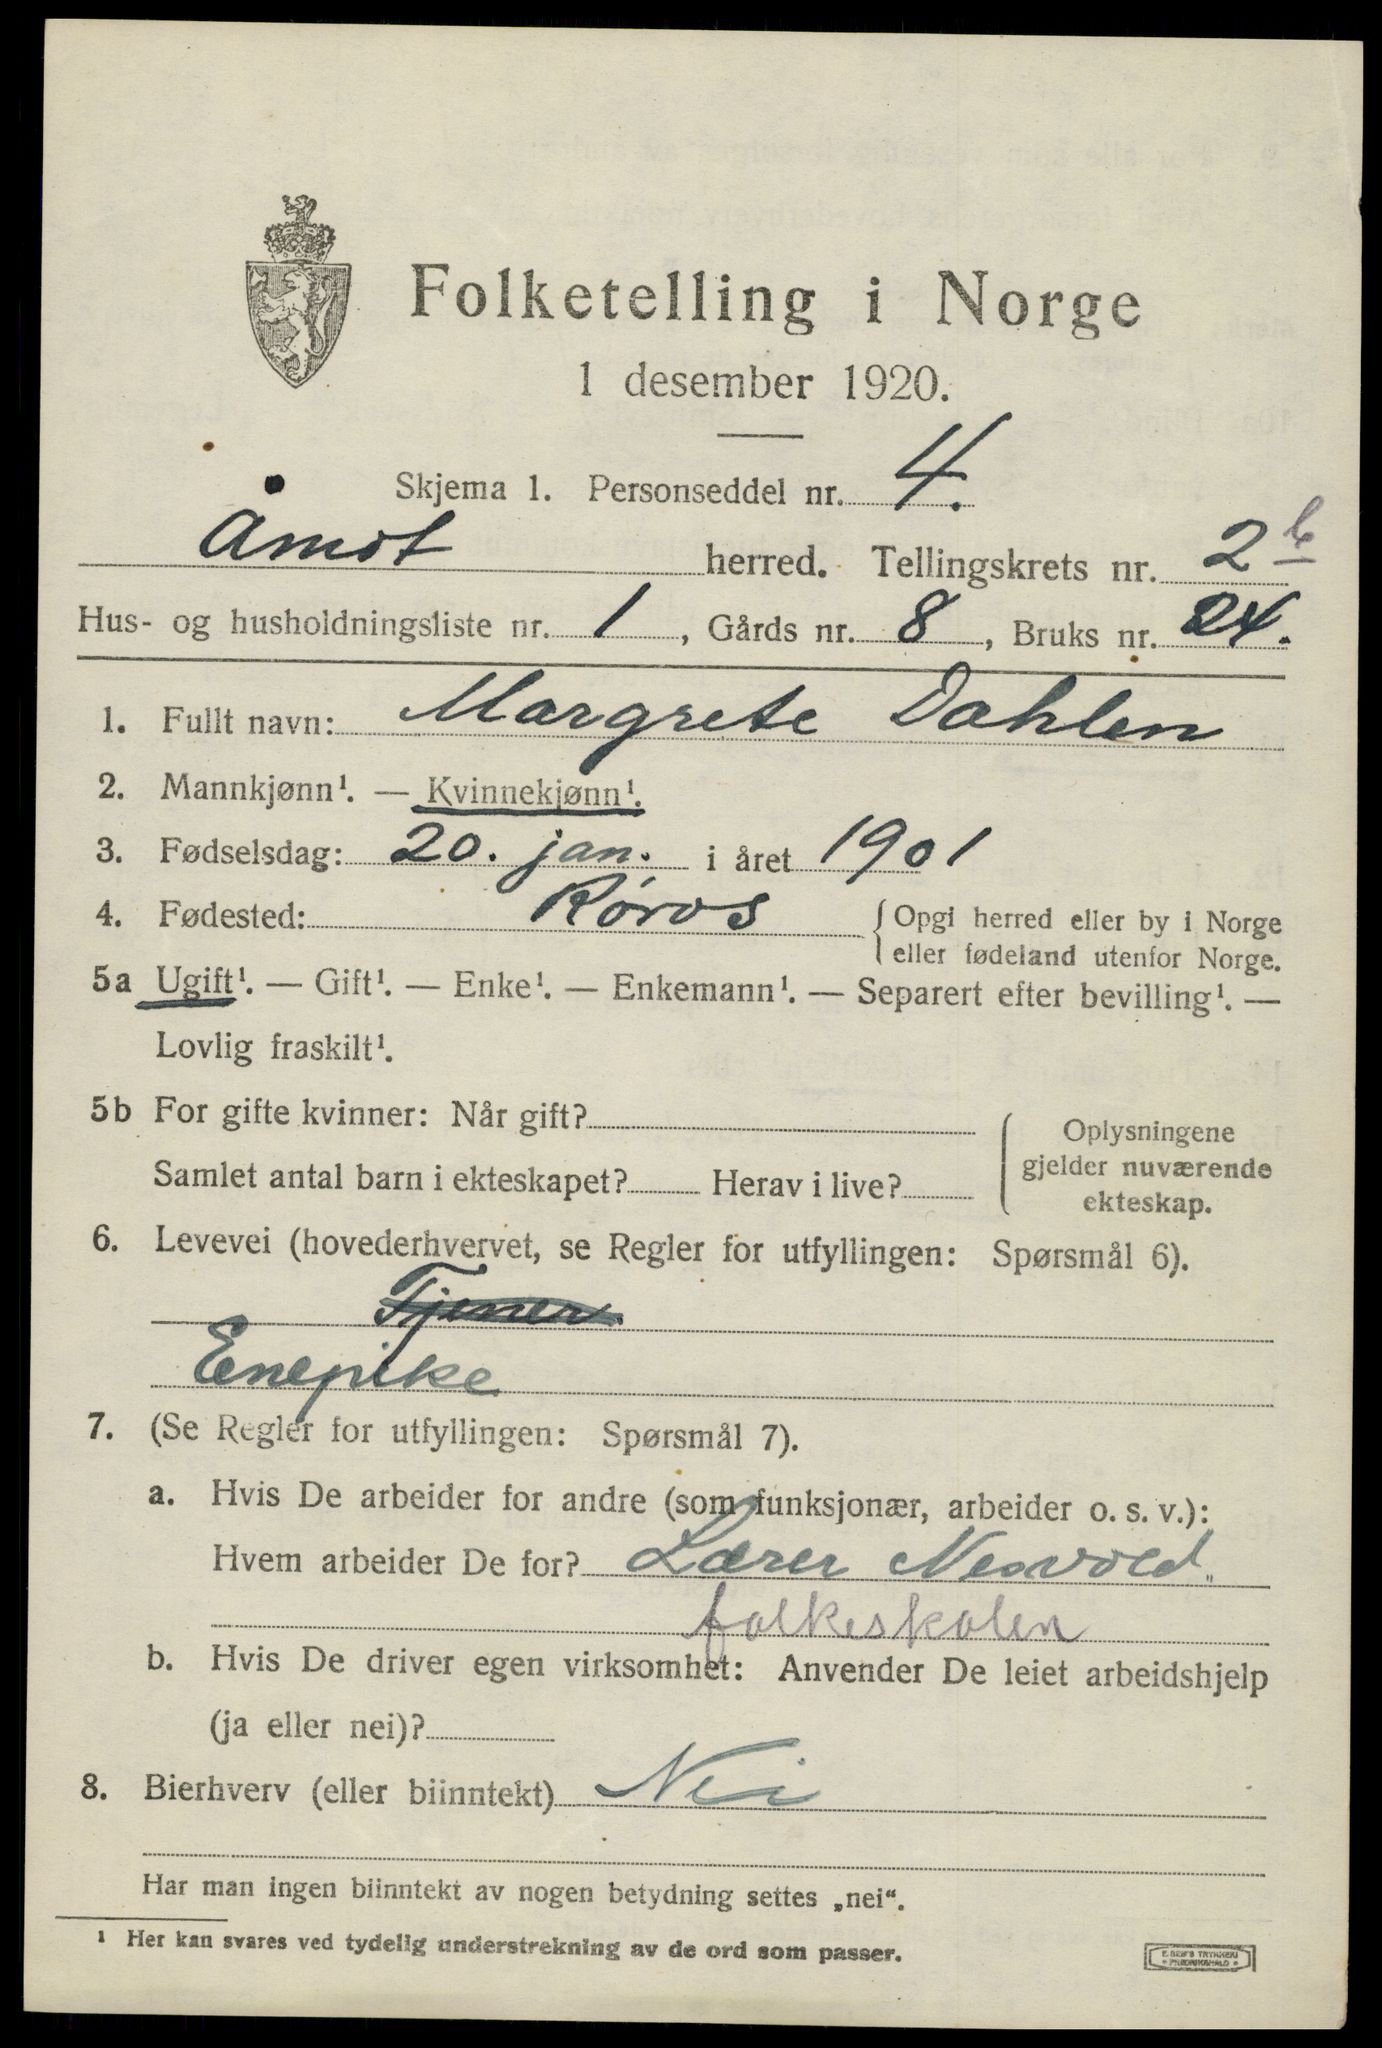 Folketelling i Norge
1 desember 1920.
Skjema 1. Personseddel nr. 4.
Åmot herred. Tellingskrets nr. 2 b
Hus- og husholdningsliste nr. 1, Gårds nr. 8, Bruks nr. 24.
1. Fullt navn: Margrete Dahlen
2. Mannkjønn¹. — Kvinnekjønn¹.
3. Fødselsdag: 20. jan. i året 1901
4. Fødested: Røros { Opgi herred eller by i Norge
eller fødeland utenfor Norge.
5a Ugift¹. — Gift¹. — Enke¹. — Enkemann¹. — Separert efter bevilling¹. —
Lovlig fraskilt¹.
5b For gifte kvinner: Når gift?
Samlet antal barn i ekteskapet? Herav i live?
Oplysningene
gjelder nuværende
ekteskap.
6. Levevei (hovederhvervet, se Regler for utfyllingen: Spørsmål 6).
Tjener
Enepike
7. (Se Regler for utfyllingen: Spørsmål 7).
a. Hvis De arbeider for andre (som funksjonær, arbeider o. s. v.):
Hvem arbeider De for? Lærer Nesvold „
folkeskolen
b. Hvis De driver egen virksomhet: Anvender De leiet arbeidshjelp
(ja eller nei)?
8. Bierhverv (eller biinntekt) Nei
Har man ingen biinntekt av nogen betydning settes „nei“.
¹ Her kan svares ved tydelig understrekning av de ord som passer.
E. SEM'S TRYKKERI
FREDRIKSHALD